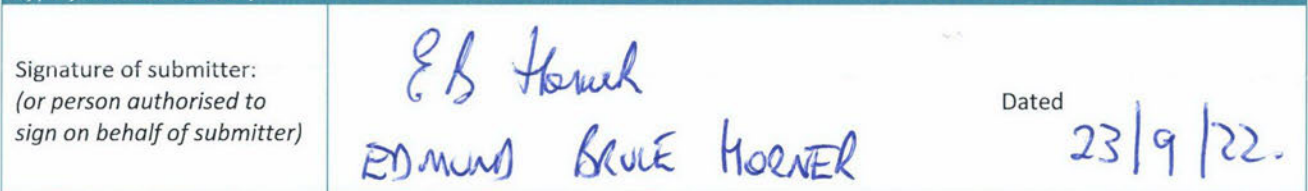 Signature of submitter:
(or person authorised to
sign on behalf of submitter)
EB Horner
EDMUND BRUCE HORNER
Dated
23/9/22.